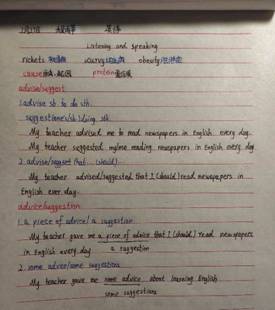 Listening and speaking
rickets scurvy obesity 肥胖症
cause 原因 protein 蛋白质
advise/suggest
1. advise sb to do sth.
suggest one's/sb doing sth.
My teacher advised me to read newspapers in English every day.
My teacher suggested my/me reading newspapers in English every day.
2. advise/suggest that... (should)
My teacher advised/suggested that I (should) read newspapers in
English ever day.
advice/suggestion
1. a piece of advice/ a suggestion
My teacher gave me a piece of advice that I (should) read newspapers
in English every day. a suggestion
2. some advice/some suggestions
My teacher gave me some advice about learning English.
some suggestions